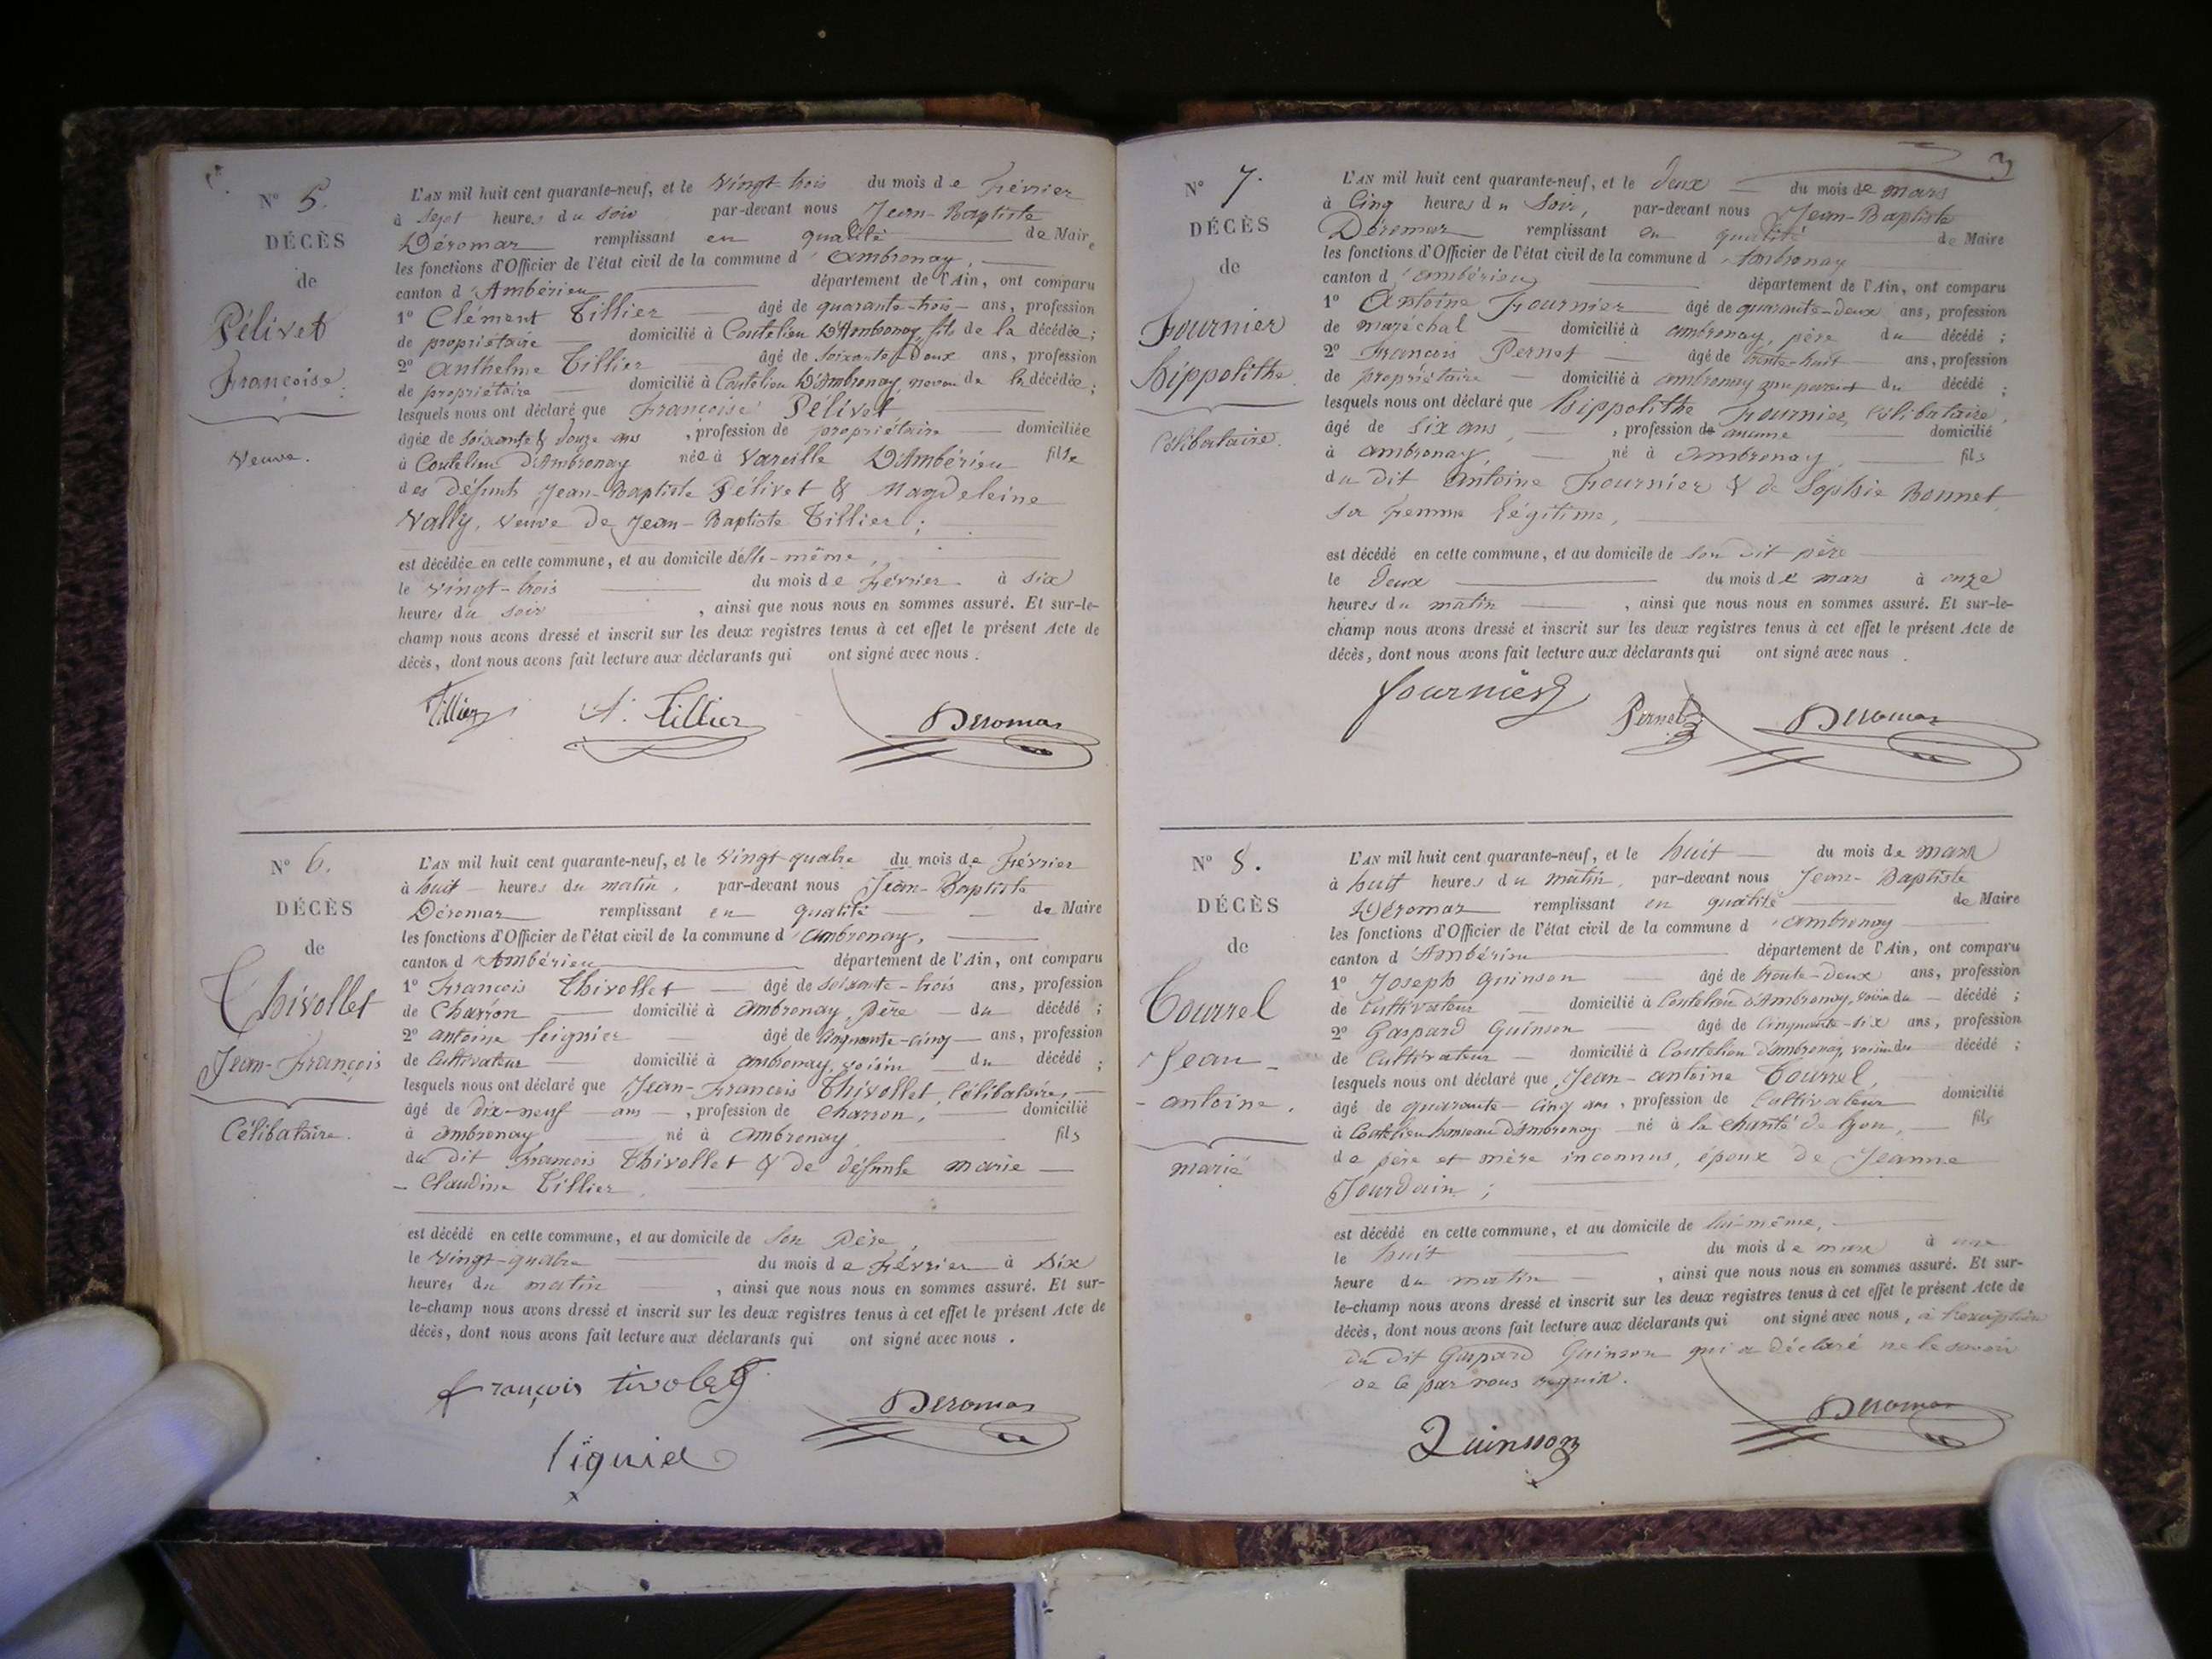 N° 5.
DÉCÈS
de
Pélivet
Françoise.
Veuve.
L'AN mil huit cent quarante-neuf, et le vingt-trois du mois de Février
à sept heures du soir par-devant nous Jean-Baptiste
Déromas remplissant en qualité de Maire
les fonctions d'Officier de l'état civil de la commune d'Ambronay,
canton d'Ambérieu département de l'Ain, ont comparu
1° Clément Tillier âgé de quarante-trois ans, profession
de propriétaire domicilié à Coutelieu D'Ambronay, fils de la décédée ;
2° Anthelme Tillier âgé de soixante-deux ans, profession
de propriétaire domicilié à Coutelieu D'Ambronay, neveu de la décédée ;
lesquels nous ont déclaré que Françoise Pélivet
âgée de soixante & douze ans, profession de propriétaire domiciliée
à Coutelieu d'Ambronay née à Vareille D'Ambérieu fille
des défunts Jean-Baptiste Pélivet & Magdeleine
Vally, veuve de Jean-Baptiste Tillier ;
est décédée en cette commune, et au domicile d'elle-même,
le vingt-trois du mois de Février à six
heures du soir, ainsi que nous nous en sommes assuré. Et sur-le-
champ nous avons dressé et inscrit sur les deux registres tenus à cet effet le présent Acte de
décès, dont nous avons fait lecture aux déclarants qui ont signé avec nous.
Tillier A. Tillier Deromas
N° 6.
DÉCÈS
de
Thivollet
Jean-François
Célibataire.
L'AN mil huit cent quarante-neuf, et le vingt-quatre du mois de Février
à huit heures du matin, par-devant nous Jean-Baptiste
Déromas remplissant en qualité de Maire
les fonctions d'Officier de l'état civil de la commune d'Ambronay,
canton d'Ambérieu département de l'Ain, ont comparu
1° François Thivollet âgé de soixante-trois ans, profession
de Charron domicilié à Ambronay, Père du décédé ;
2° antoine Leignier âgé de Cinquante-cinq ans, profession
de Cultivateur domicilié à ambronay, voisin du décédé ;
lesquels nous ont déclaré que Jean-François Thivollet, Célibataire,
âgé de dix-neuf ans, profession de Charron, domicilié
à ambronay né à ambronay fils
du dit François Thivollet & de défunte marie
- Claudine Tillier,
est décédé en cette commune, et au domicile de son Père,
le vingt-quatre du mois de Février à six
heures du matin, ainsi que nous nous en sommes assuré. Et sur-
le-champ nous avons dressé et inscrit sur les deux registres tenus à cet effet le présent Acte de
décès, dont nous avons fait lecture aux déclarants qui ont signé avec nous.
françois tivolet Deromas
3
N° 7.
DÉCÈS
de
Fournier
hippolithe.
Célibataire.
L'AN mil huit cent quarante-neuf, et le deux du mois de mars
à Cinq heures du Soir, par-devant nous Jean-Baptiste
Déromas remplissant en qualité de Maire
les fonctions d'Officier de l'état civil de la commune d'Ambronay
canton d'ambérieu département de l'Ain, ont comparu
1° Antoine Fournier âgé de quarante-deux ans, profession
de maréchal domicilié à ambronay, père du décédé ;
2° François Pernet âgé de trente-huit ans, profession
de propriétaire domicilié à ambronay, non parent du décédé ;
lesquels nous ont déclaré que hippolithe Fournier, Célibataire,
âgé de six ans, profession de aucune domicilié
à ambronay, né à Ambronay, fils
du dit Antoine Fournier & de Sophie Bonnet,
sa Femme légitime,
est décédé en cette commune, et au domicile de son dit père
le deux du mois de mars à onze
heures du matin, ainsi que nous nous en sommes assuré. Et sur-le-
champ nous avons dressé et inscrit sur les deux registres tenus à cet effet le présent Acte de
décès, dont nous avons fait lecture aux déclarants qui ont signé avec nous.
fournier Pernet Deromas
N° 8.
DÉCÈS
de
Tourrel
Jean-
- antoine.
marié
L'AN mil huit cent quarante-neuf, et le huit du mois de mars
à huit heures du matin, par-devant nous Jean-Baptiste
Déromas remplissant en qualité de Maire
les fonctions d'Officier de l'état civil de la commune d'ambronay
canton d'Ambérieu département de l'Ain, ont comparu
1° Joseph Quinson âgé de trente-deux ans, profession
de Cultivateur domicilié à Coutelieu d'Ambronay, voisin du décédé ;
2° Gaspard Quinson âgé de Cinquante-six ans, profession
de Cultivateur domicilié à Coutelieu d'ambronay, voisin du décédé ;
lesquels nous ont déclaré que Jean-antoine Tourrel,
âgé de quarante-cinq ans, profession de Cultivateur domicilié
à Coutelieu hameau d'ambronay né à la charité de Lyon, fils
de père et mère inconnus, époux de Jeanne
Jourdain ;
est décédé en cette commune, et au domicile de lui-même,
le huit du mois de mars à une
heure du matin, ainsi que nous nous en sommes assuré. Et sur-
le-champ nous avons dressé et inscrit sur les deux registres tenus à cet effet le présent Acte de
décès, dont nous avons fait lecture aux déclarants qui ont signé avec nous, à l'exception
du dit Gaspard Quinson qui a déclaré ne le savoir
de ce par nous requis.
Quinson Deromas